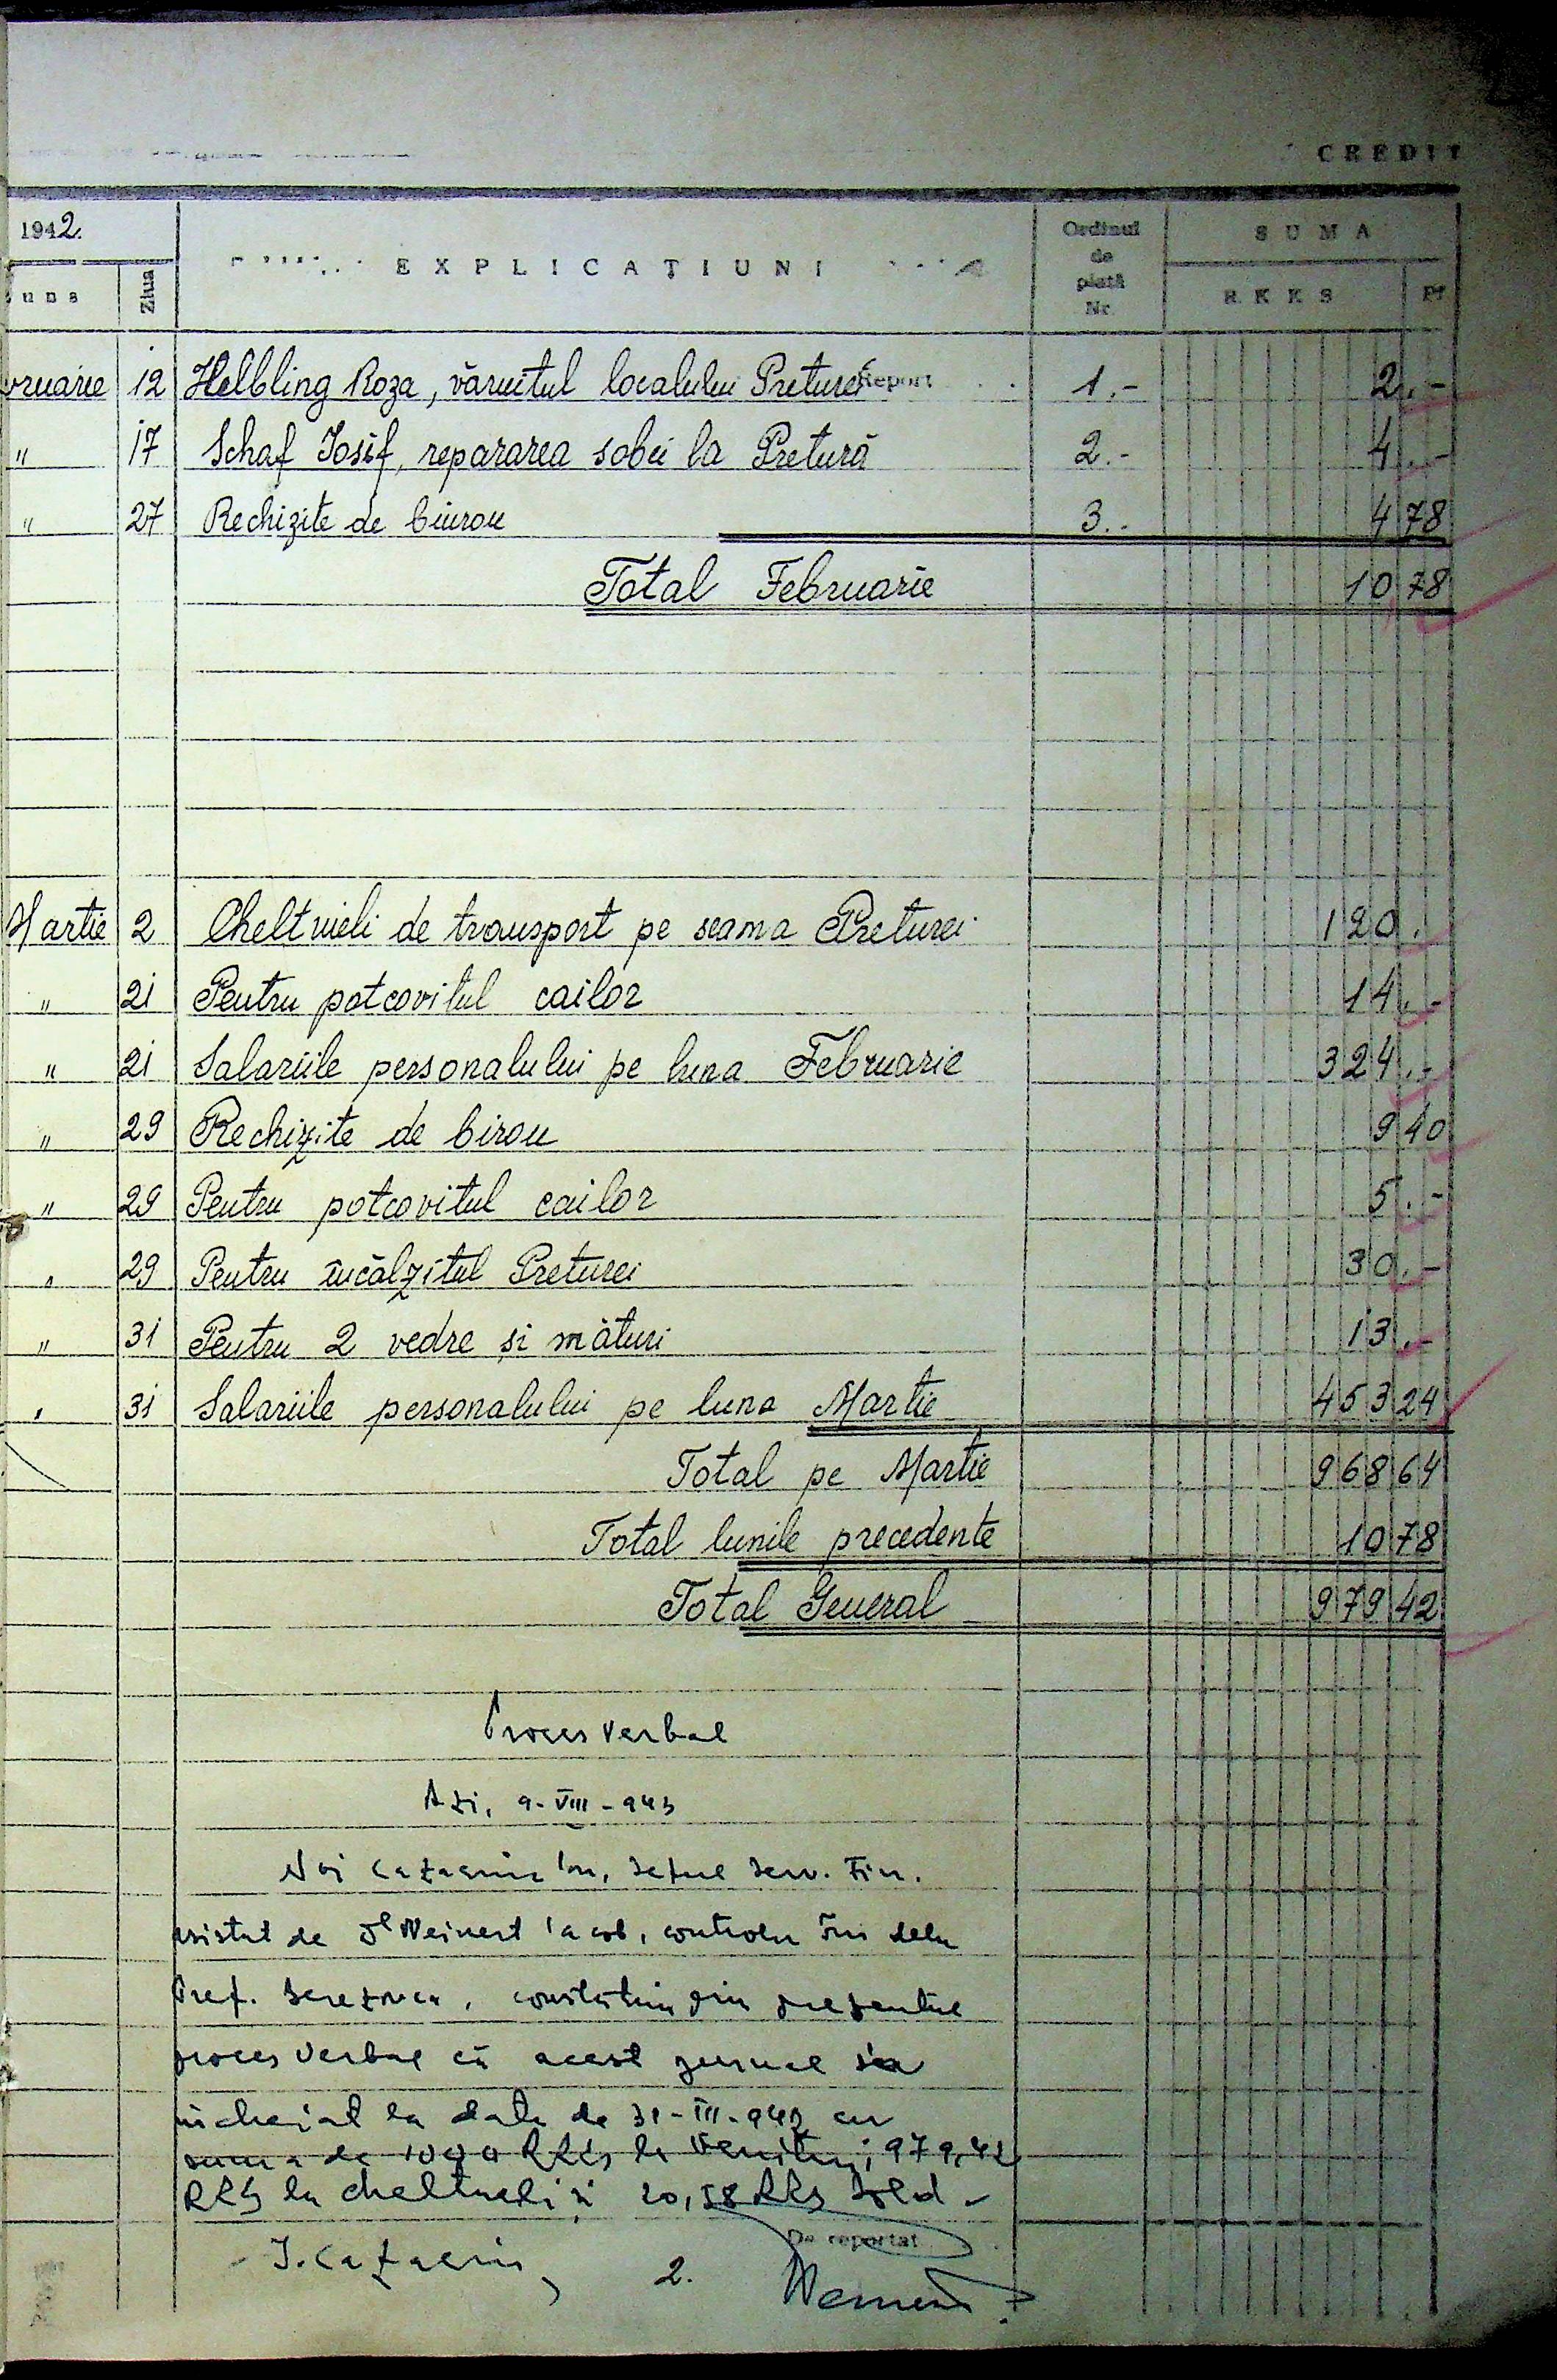 CREDIT
1942.
EXPLICAȚIUNI
Ordinul de plată Nr.
SUMA
Luna Ziua
RKKS Pf
Report
bruarie 12 Helbling Roza, văruitul localului Preturei 1.- 2.-
" 17 Schaf Iosif, repararea sobei la Pretură 2.- 4.-
" 27 Rechizite de biurou 3.- 4 78
Total Februarie 10 78
Martie 2 Cheltuieli de transport pe seama Preturei 120.
" 21 Pentru potcovitul cailor 14.-
" 21 Salariile personalului pe luna Februarie 324.-
" 29 Rechizite de birou 9 40
" 29 Pentru potcovitul cailor 5.-
" 29 Pentru încălzitul Preturei 30.-
" 31 Pentru 2 vedre și mături 13.-
" 31 Salariile personalului pe luna Martie 453 24
Total pe Martie 968 64
Total lunile precedente 10 78
Total General 979 42
Proces Verbal
Azi, 9-VIII-943
Noi Cazacriuc Ion, șeful Serv. Fin.
asistat de Dl Weinert Iacob, controlor fin dela
Pref. Berezovca, constatăm prin prezentul
proces verbal că acest jurnal s'a
încheiat la data de 31-III-942 cu
suma de 1000 RKKS la Venituri; 979,42
RKKS la cheltueli și 20,58 RKKS Sold -
De reportat
2.